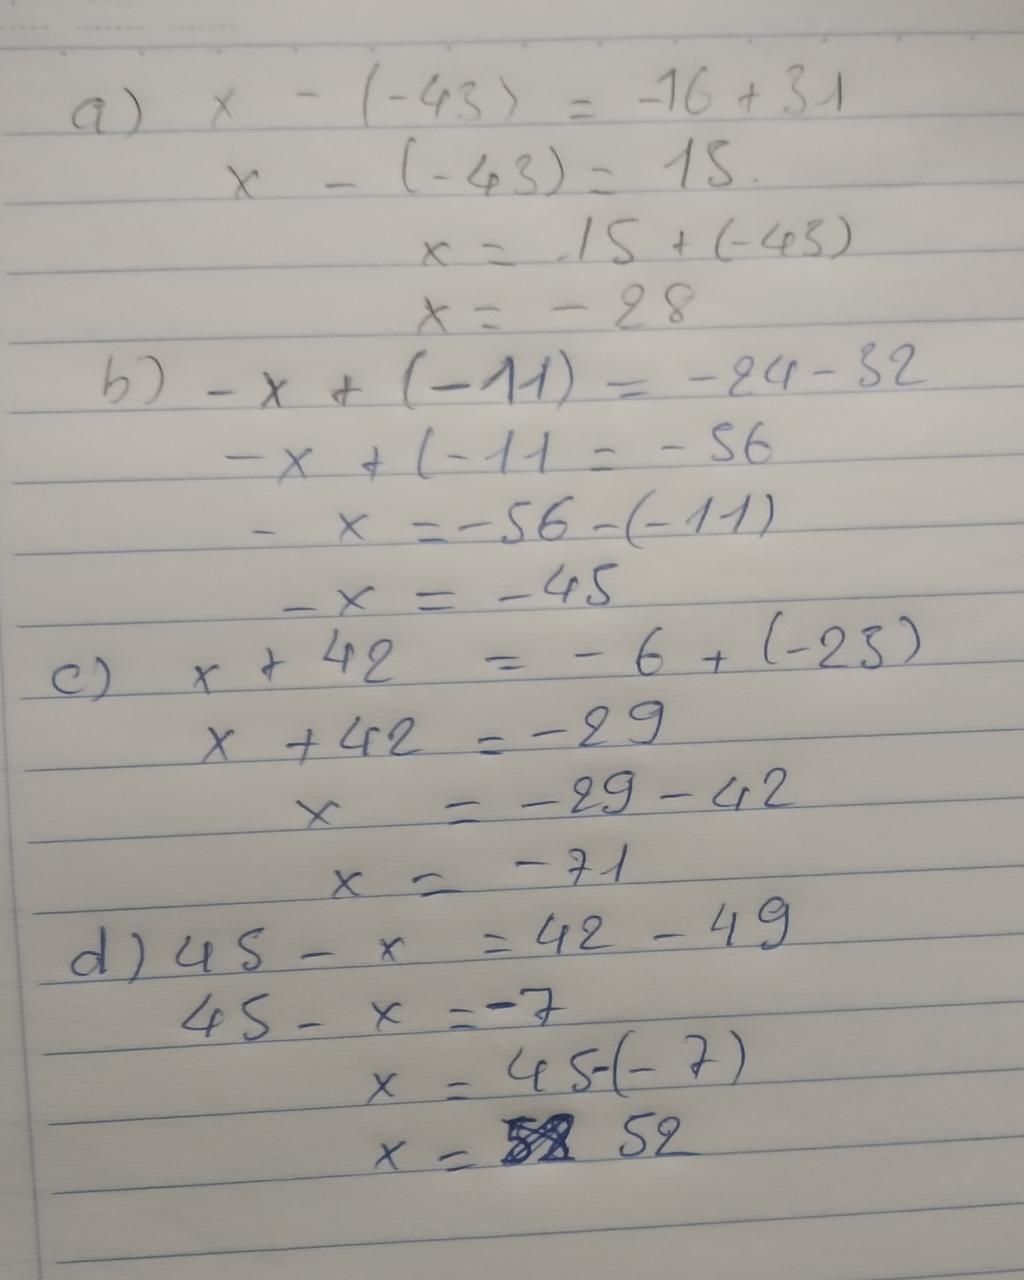 a) x - (-43) = -16 + 31
x - (-43) = 15.
x = 15 + (-43)
x = - 28
b) - x + (-11) = -24 - 32
- x + (-11 = - 56
- x = -56 - (-11)
- x = -45
c) x + 42 = - 6 + (-23)
x + 42 = -29
x = -29 - 42
x = -71
d) 45 - x = 42 - 49
45 - x = -7
x = 45-(- 7)
x = 52